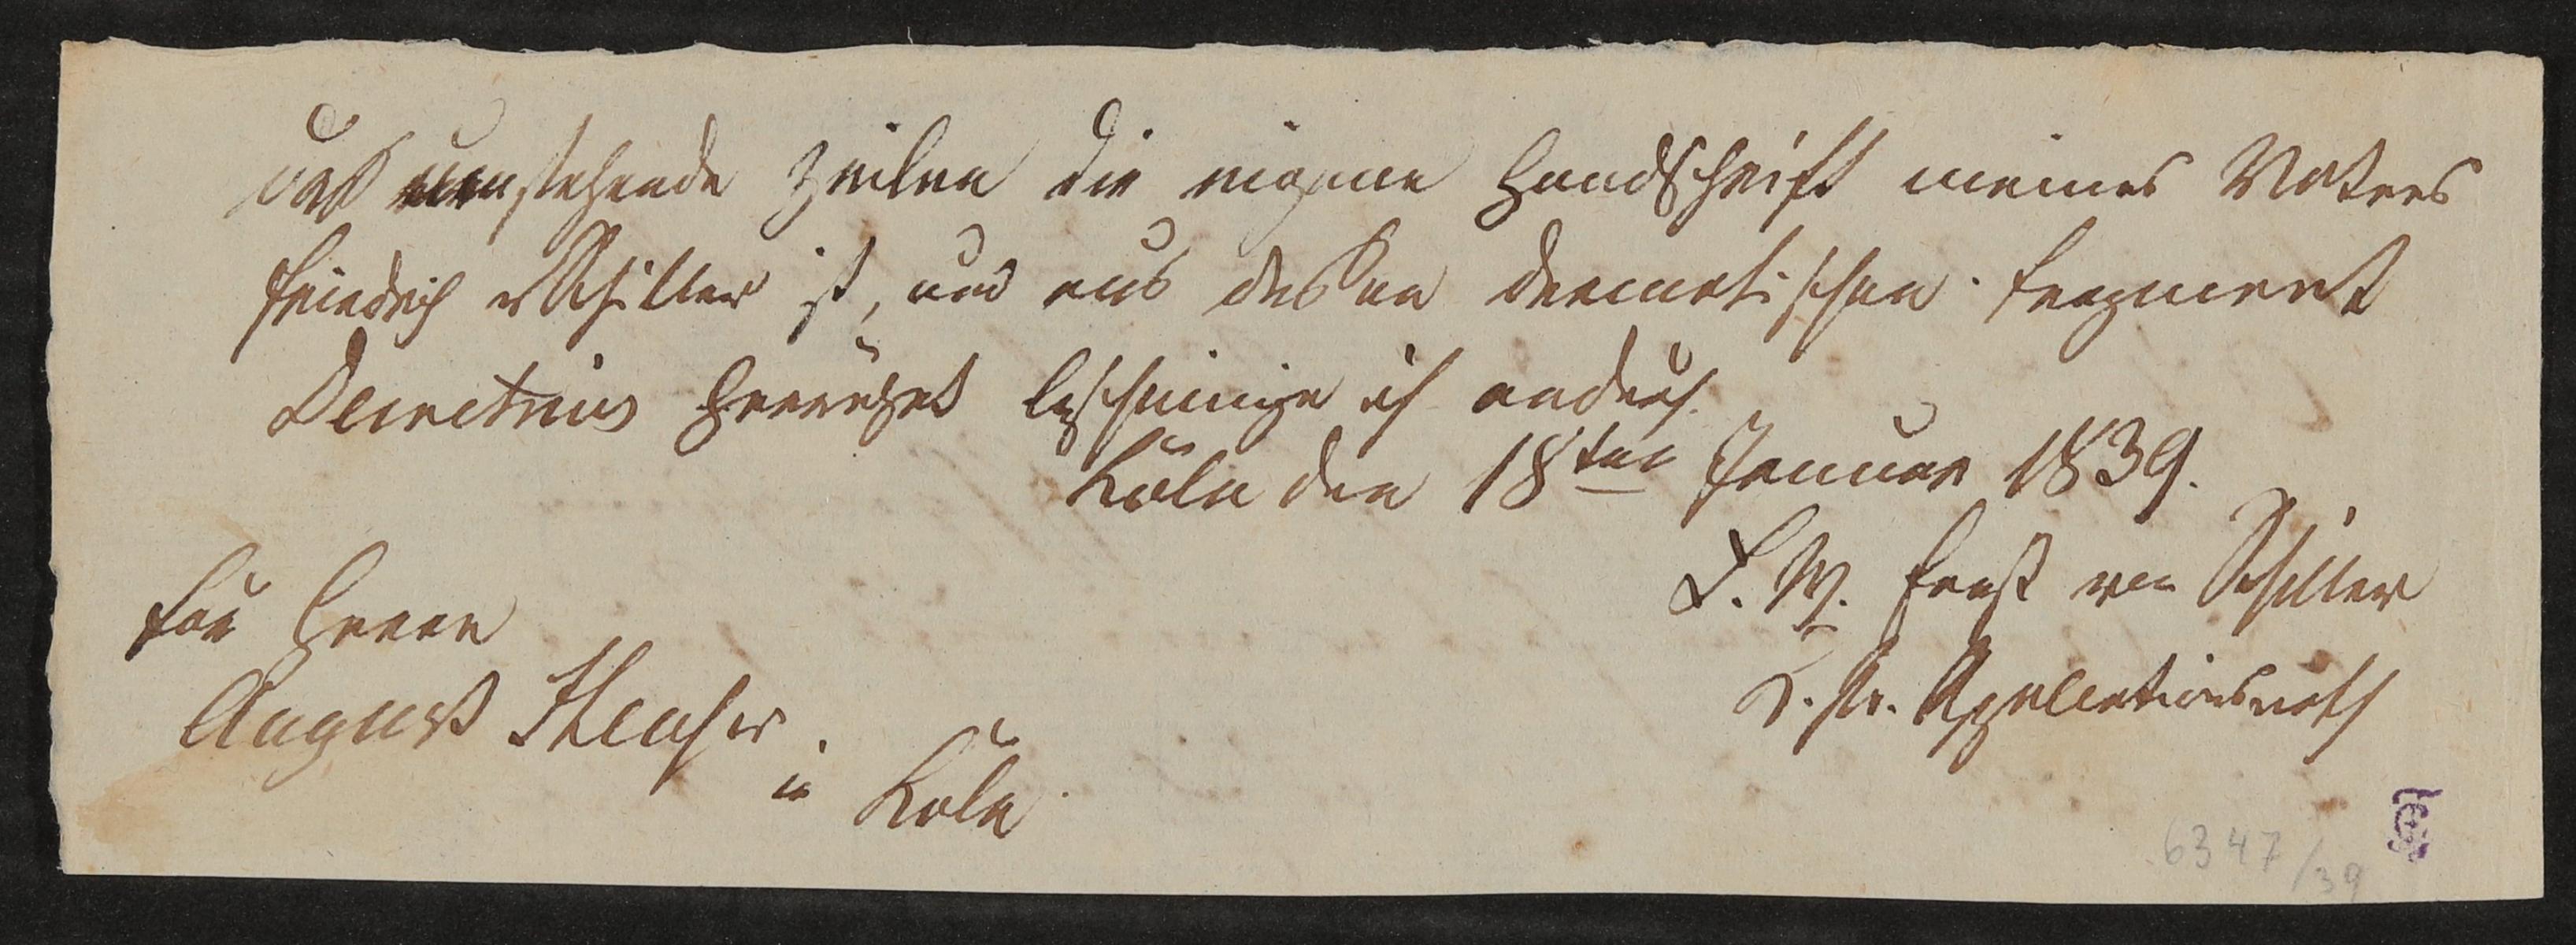 Daß umstehende Zeilen die eigene Handschrift meines Vaters
Friedrich v Schiller ist, und aus dessen dramatischen Fragment
Demetrius herrührt bescheinige ich andurch.
Köln den 18ten Januar 1839.
F. W. Ernst von Schiller
K. Pr. Appellationsrath
Für Herrn
August
in Köln.
6347/39